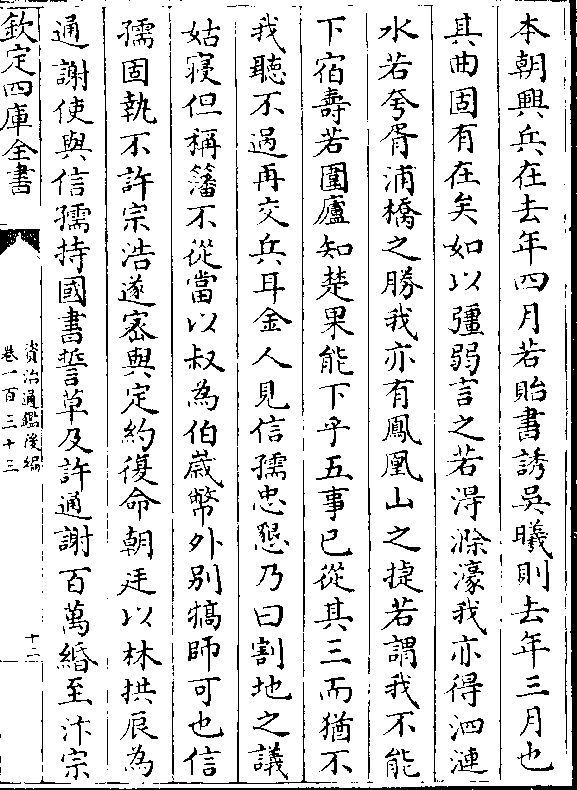 本朝興兵在去年四月若貽書誘吳曦則去年三月也
其曲固有在矣如以彊弱言之若得滁濠我亦得泗漣
水若夸胥浦橋之勝我亦有鳳凰山之捷若謂我不能
下宿壽若圍廬知楚果能下乎五事已從其三而猶不
我聽不過再交兵耳金人見信孺忠懇乃曰割地之議
姑寢但稱籓不從當以叔為伯歳幣外别犒師可也信
孺固執不許宗浩遂密與定約復命朝廷以林拱辰為
通謝使與信孺持國書誓草及許通謝百萬緡至汴宗
欽定四庫全書
資治通鑑後編
卷一百三十三
十二